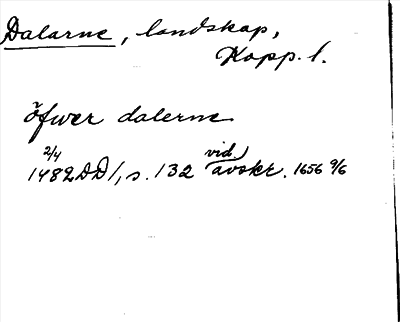 Dalarne, landskap,
Kopp. l.
öfwer dalerne
2/4 1482 DD 1, s. 132 vid. avskr. 1656 9/6